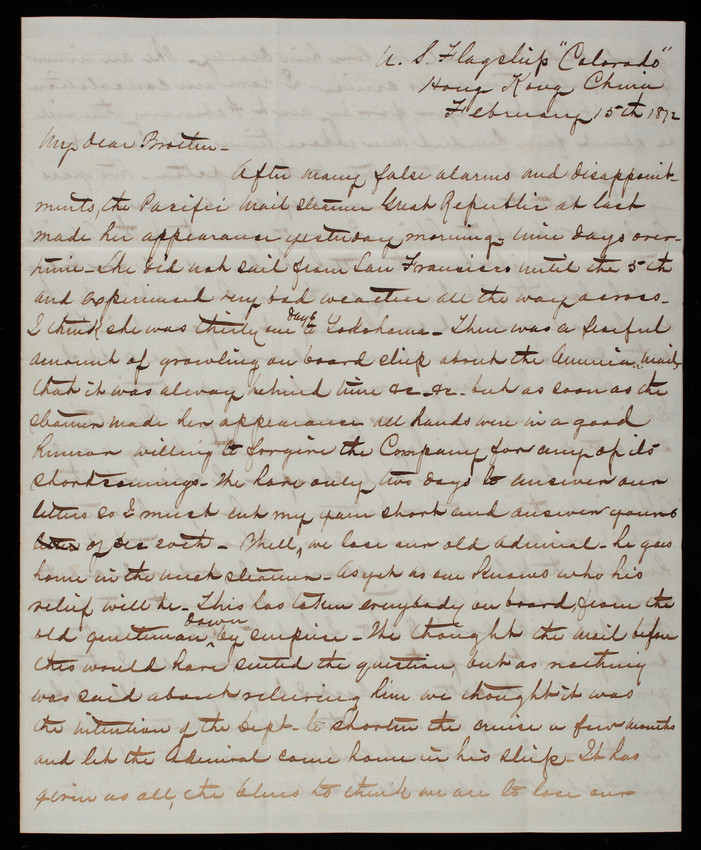 U. S. Flagship "Colorado"
Hong Kong China
February 15th 1872
My dear Brother -
After many false alarms and disappoint-
ments, the Pacific Mail steamer Great Republic at last
made her appearance yesterday morning - nine days over-
time - She did not sail from San Francisco until the 5th
and experienced very bad weather all the way across -
I think she was thirty one days to Yokohama - There was a fearful
amount of growling on board ship about the America mail
that it was always behind time &c. &c. but as soon as the
steamer made her appearance all hands were in a good
humor willing to forgive the Company for any of its
shortcomings - We have only two days to answer our
letters so I must cut my yarn short and answer yours
letter of Dec 20th - Well, we lose our old admiral - he goes
home in the next steamer - As yet no one knows who his
relief will be - This has taken everybody on board, from the
old gentleman down by surprise - We thought the mail before
this would have settled the question, but as nothing
was said about relieving him we thought it was
the intention of the Dept. to shorten the cruise a few months
and let the Admiral come home in his ship - It has
given us all, the blues to think we are to lose our